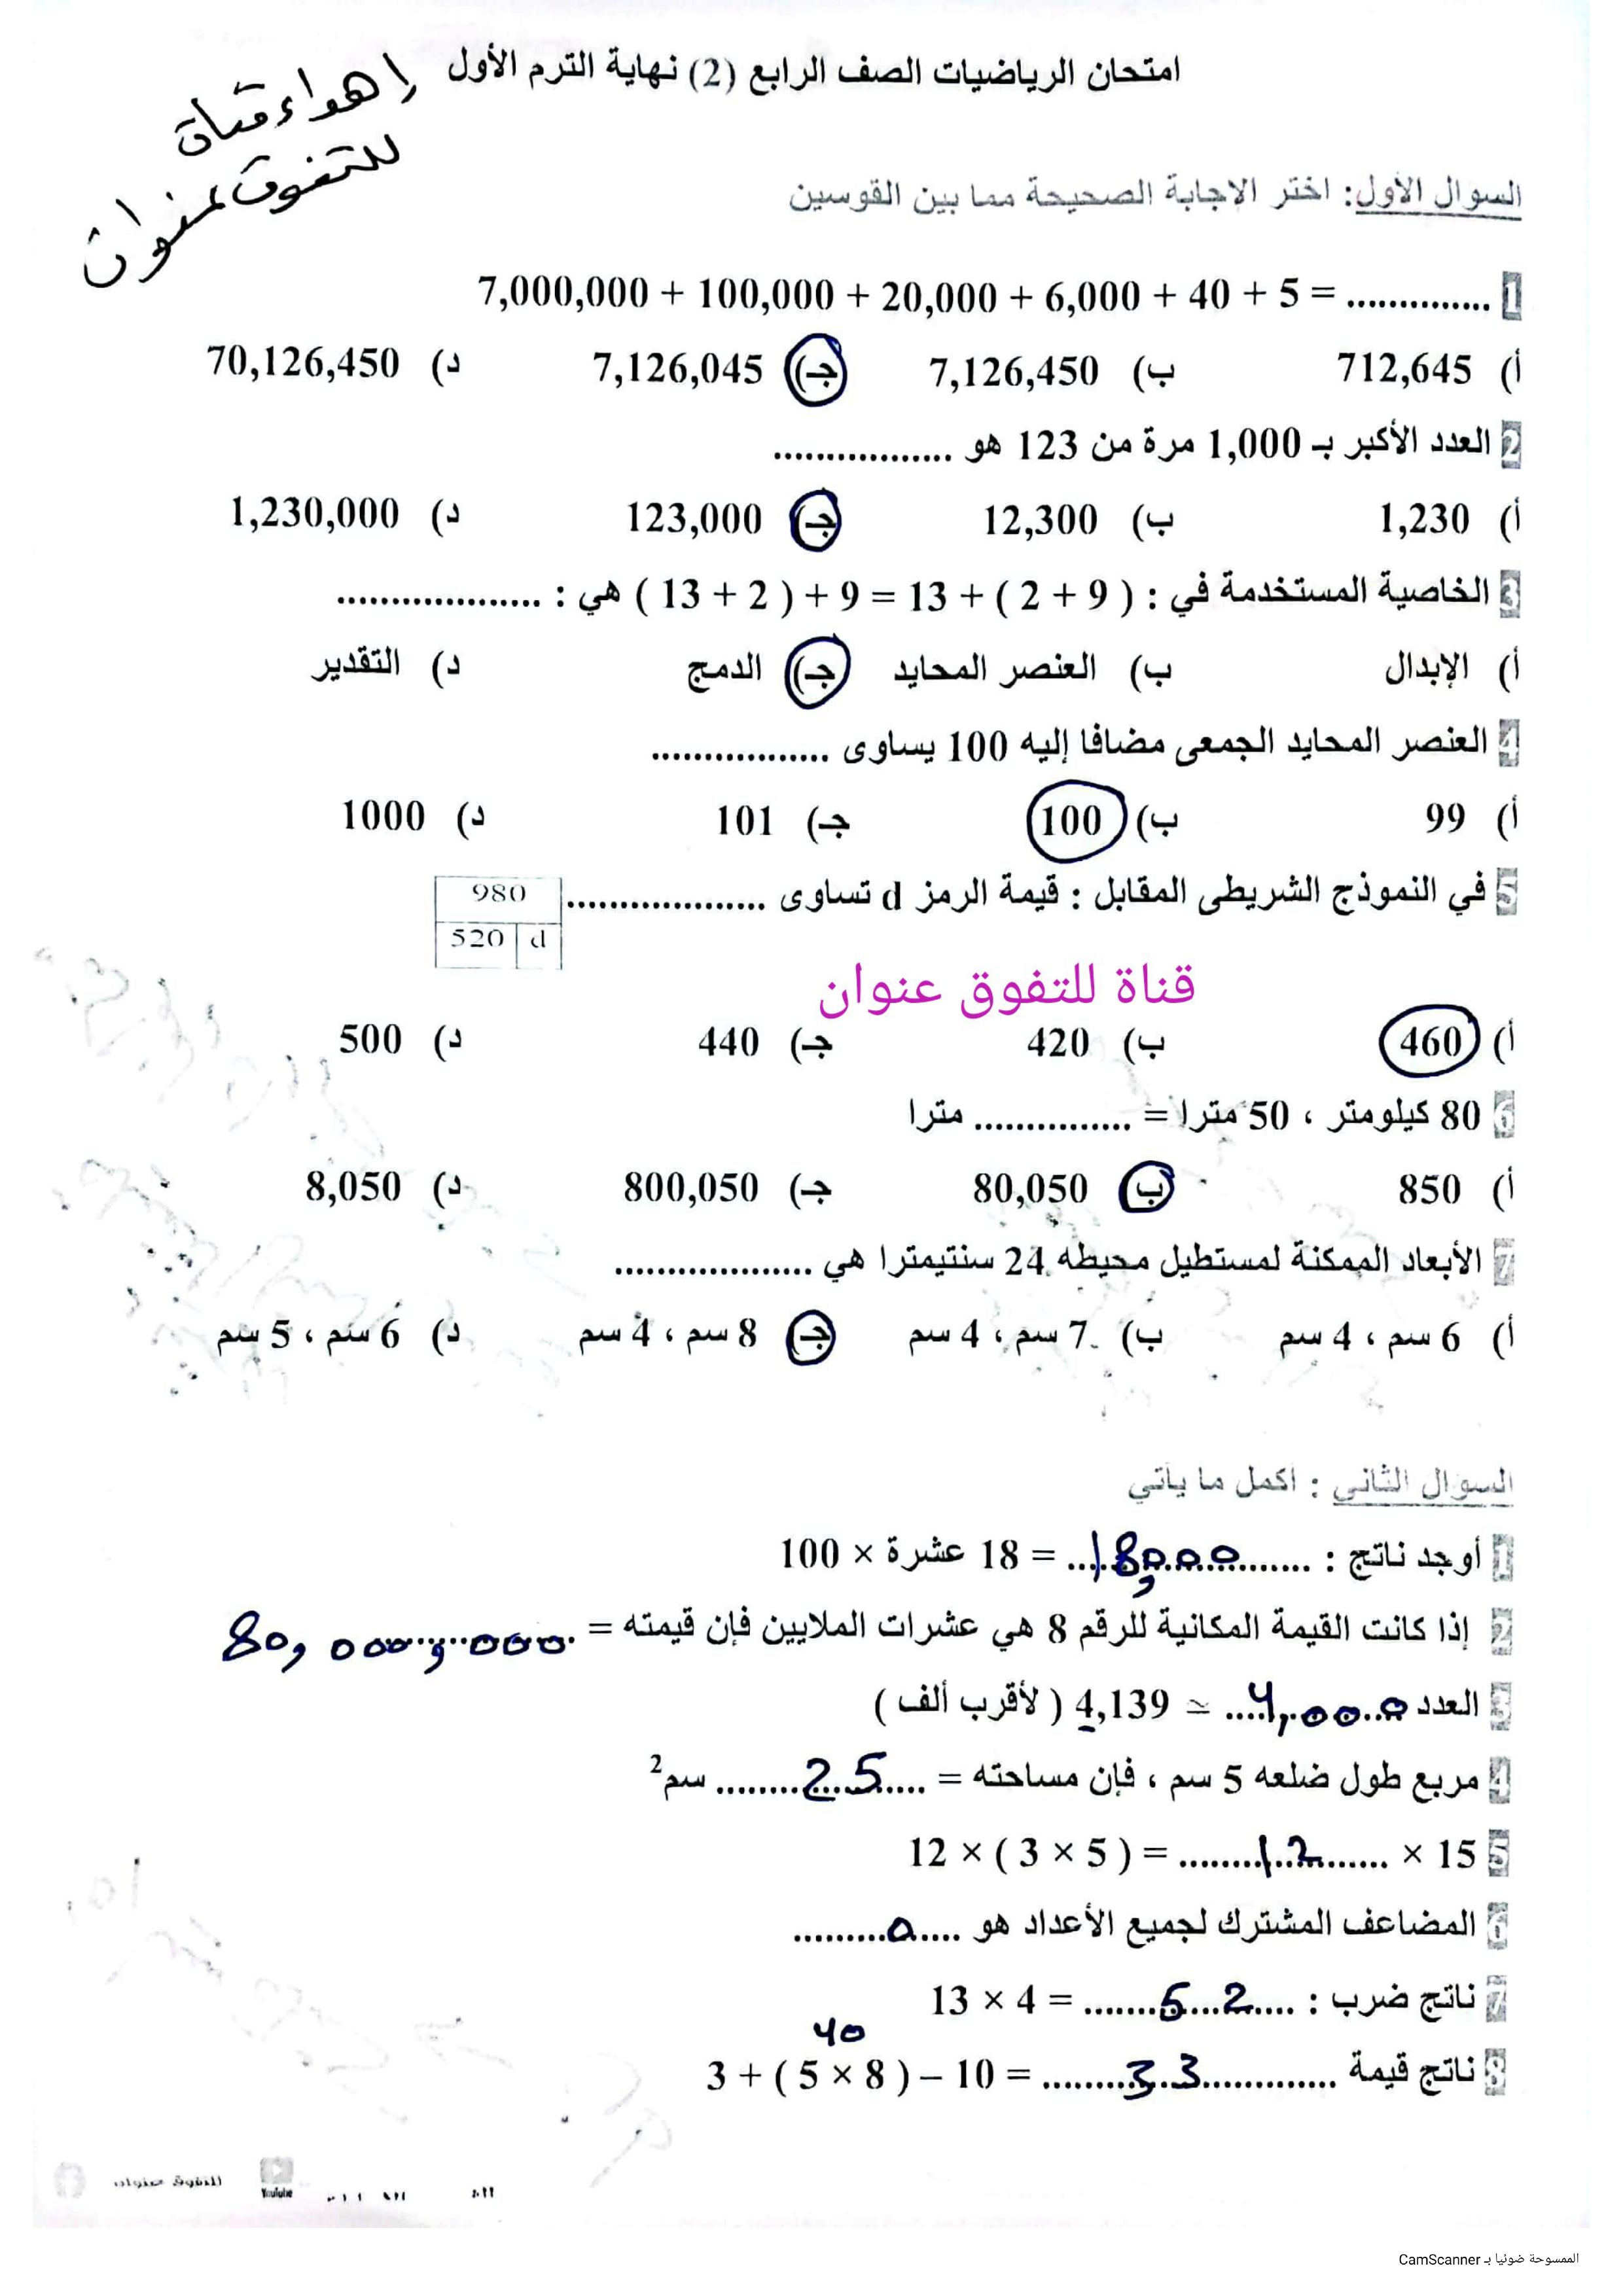 امتحان الرياضيات الصف الرابع (2) نهاية الترم الأول
إهداء قناة
للتفوق عنوان
السوال الأول: اختر الاجابة الصحيحة مما بين القوسين
1 .............. = 7,000,000 + 100,000 + 20,000 + 6,000 + 40 + 5
أ) 712,645 ب) 7,126,450 جـ) 7,126,045 د) 70,126,450
2 العدد الأكبر بـ 1,000 مرة من 123 هو .................
أ) 1,230 ب) 12,300 جـ) 123,000 د) 1,230,000
3 الخاصية المستخدمة في : ( 13 + 2 ) + 9 = 13 + ( 2 + 9 ) هي : ....................
أ) الإبدال ب) العنصر المحايد جـ) الدمج د) التقدير
4 العنصر المحايد الجمعى مضافا إليه 100 يساوى .................
أ) 99 ب) 100 جـ) 101 د) 1000
5 في النموذج الشريطى المقابل : قيمة الرمز d تساوى ...................
980
520 d
قناة للتفوق عنوان
أ) 460 ب) 420 جـ) 440 د) 500
6 80 كيلومتر ، 50 مترا = ............... مترا
أ) 850 ب) 80,050 جـ) 800,050 د) 8,050
7 الأبعاد الممكنة لمستطيل محيطه 24 سنتيمترا هي ...................
أ) 6 سم ، 4 سم ب) 7 سم ، 4 سم جـ) 8 سم ، 4 سم د) 6 سم ، 5 سم
السوال الثاني : أكمل ما يأتي
1 أوجد ناتج : 18,000 = 18 عشرة × 100
2 إذا كانت القيمة المكانية للرقم 8 هي عشرات الملايين فإن قيمته = 80,000,000
3 العدد 4,000 ≃ 4,139 ( لأقرب ألف )
4 مربع طول ضلعه 5 سم ، فإن مساحته = 25 سم²
5 12 × ( 3 × 5 ) = 12 × 15
6 المضاعف المشترك لجميع الأعداد هو 0
7 ناتج ضرب : 13 × 4 = 52
40
8 ناتج قيمة 3 + ( 5 × 8 ) – 10 = 33
للتفوق عنوان
YouTube
الممسوحة ضوئيا بـ CamScanner